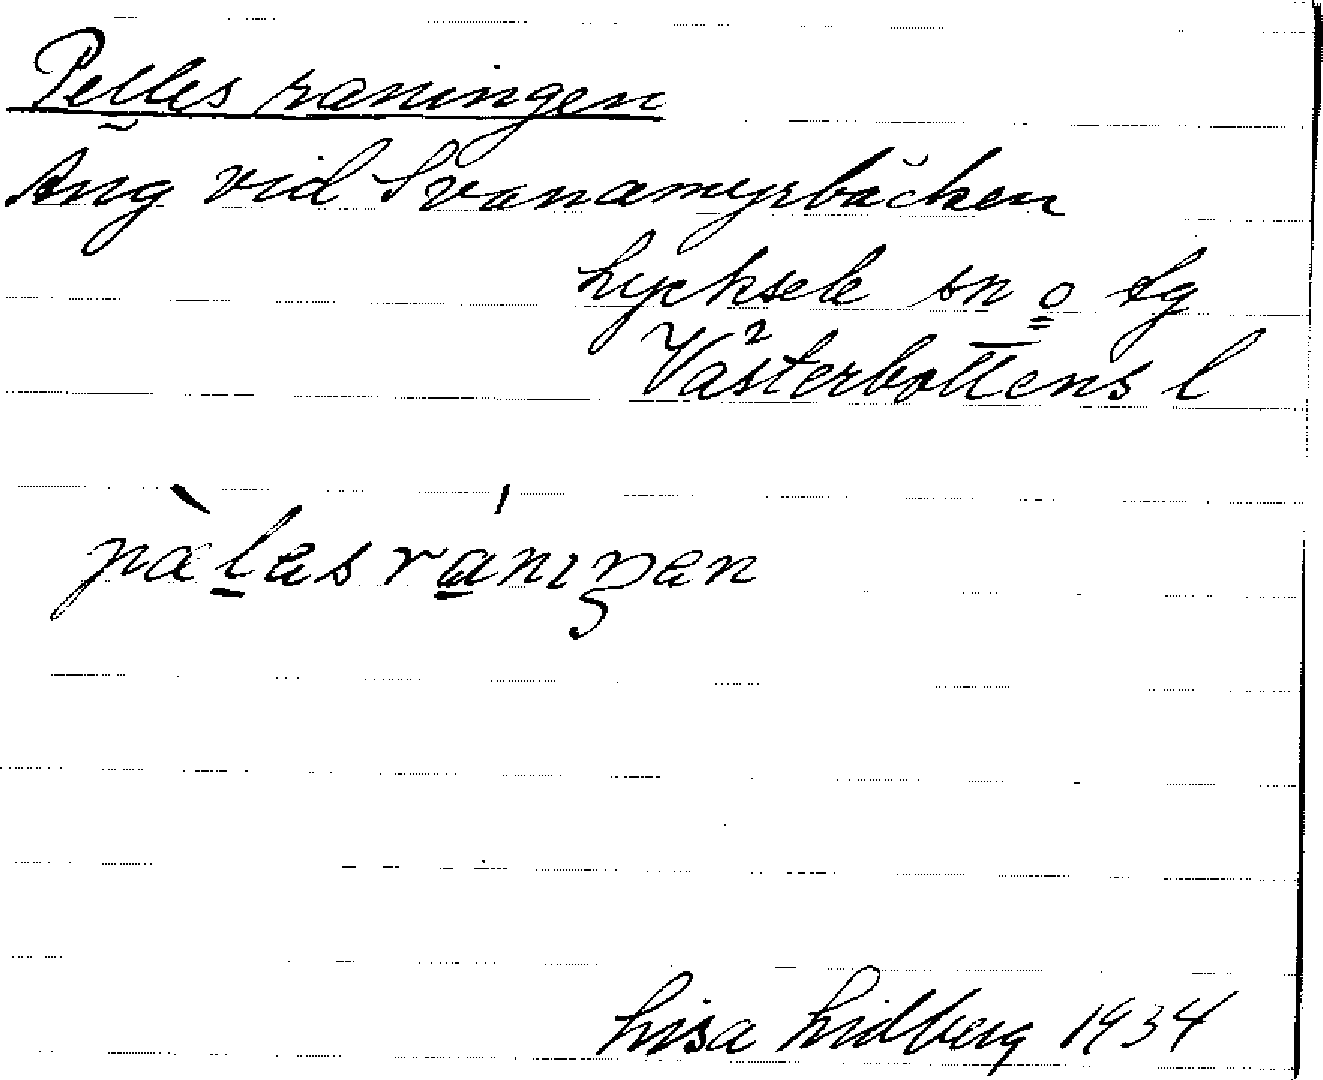 Pelles raningen
Äng vid Svanamyrbäcken
Lycksele sn o tg
Västerbottens l
pàl̲as rá̲nıŋan
Lisa Lidberg 1934